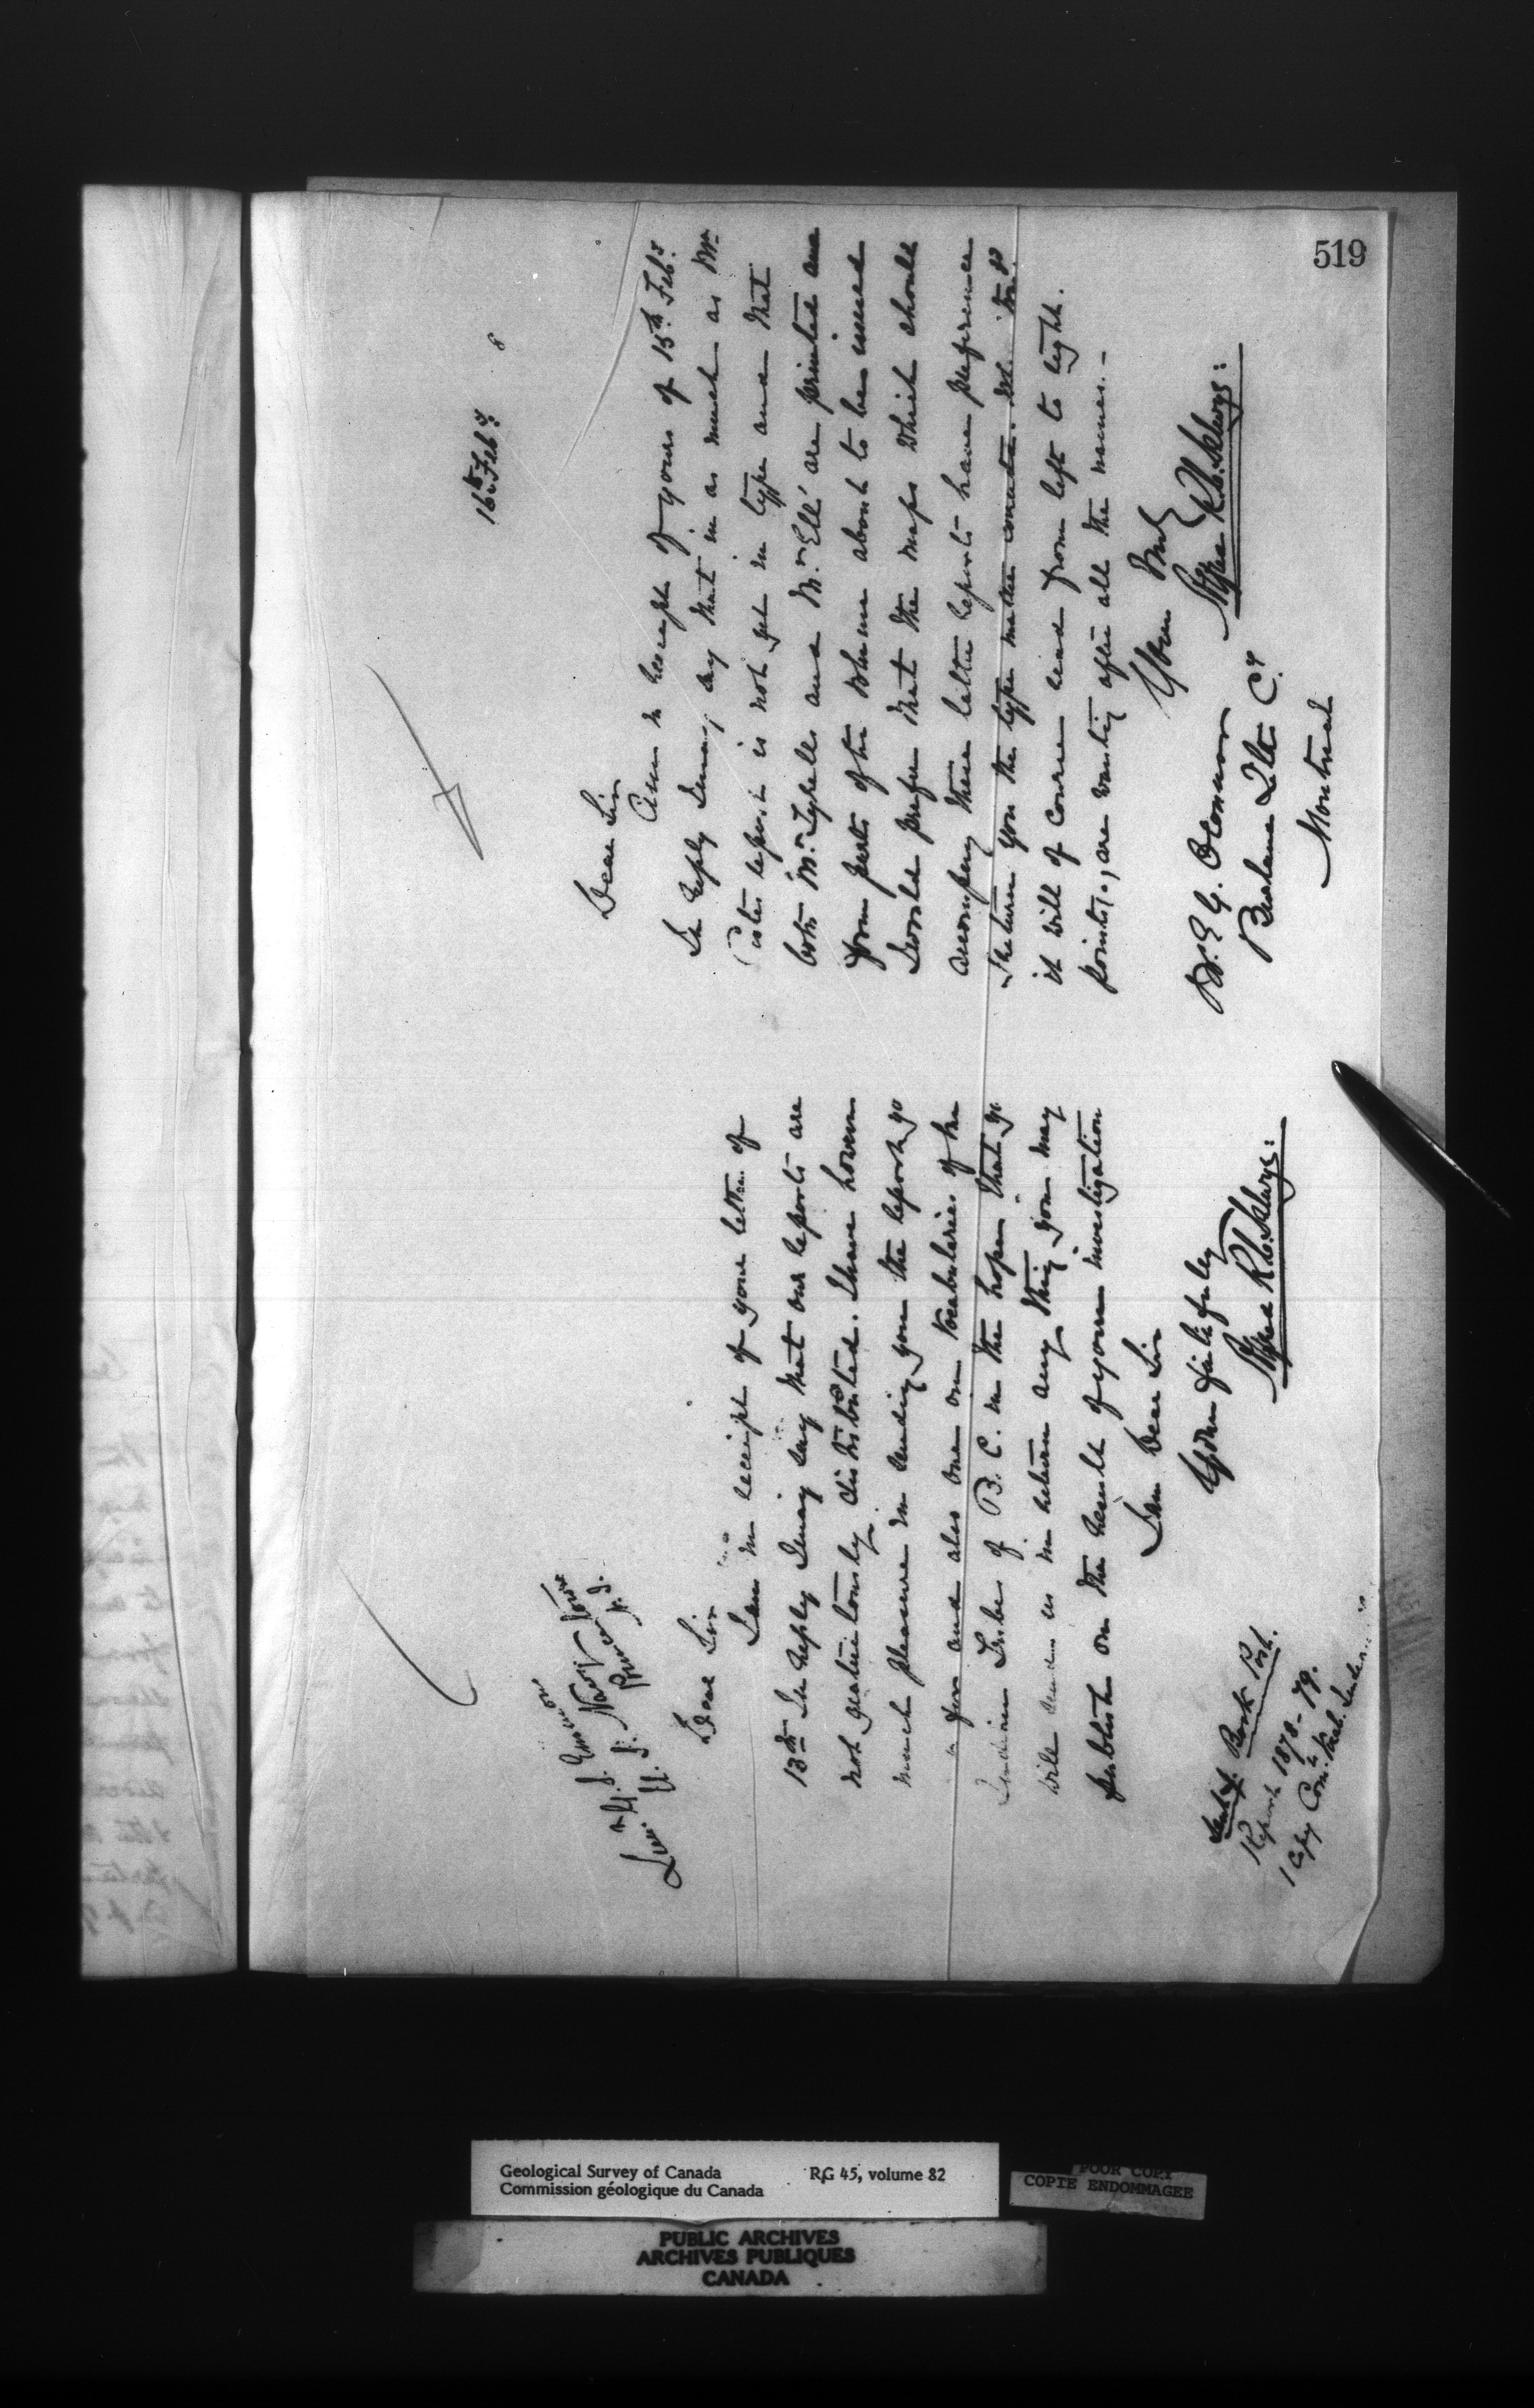 519
16th Feby
Lieut G. T. Emmons
U. S. Navy
Dear Sir
I am in receipt of your letter of
13th In reply I may say that our reports are
not gratuitously distributed. I have however
much pleasure in sending you the report go
for and also one on Vocabularies of the
Indian Tribes of B. C. in the hopes that yo
will send us in return any thing you may
publish on the result of your investigation
I am Dear Sir
Yours faithfuley
Signed R. C. Selwyn:
Sent Book Post.
Report 1878-79.
1 Copy Com. Vol.
Dear Sir
I am in receipt of yours of 15th Feby.
In reply I may say that in as much as Mr
report is not yet in type and that
both Mr Tyrell and Mr Ells' are printed and
form parts of the volume about to be issued
I would prefer that the maps which should
accompany these latter reports have preference
I return you the type matter
it will of course read from left to right.
points, are wanting after all the names.-
Yours truly
Signed R. C. Selwyn:
Burland Lith Co.
Montreal
Geological Survey of Canada
Commission géologique du Canada
RG 45, volume 82
POOR COPY
COPIE ENDOMMAGEE
PUBLIC ARCHIVES
ARCHIVES PUBLIQUES
CANADA